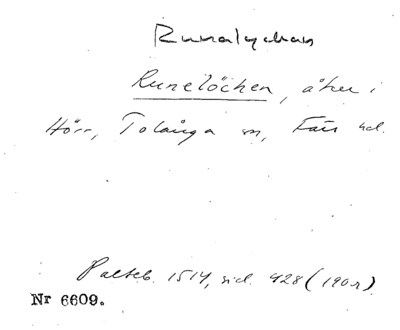 Runalyckan
Runelöchen, åker i
Hörr, Tolånga sn, Färs hd.
Palteb. 1514, sid. 428 (190r)
Nr 6609.